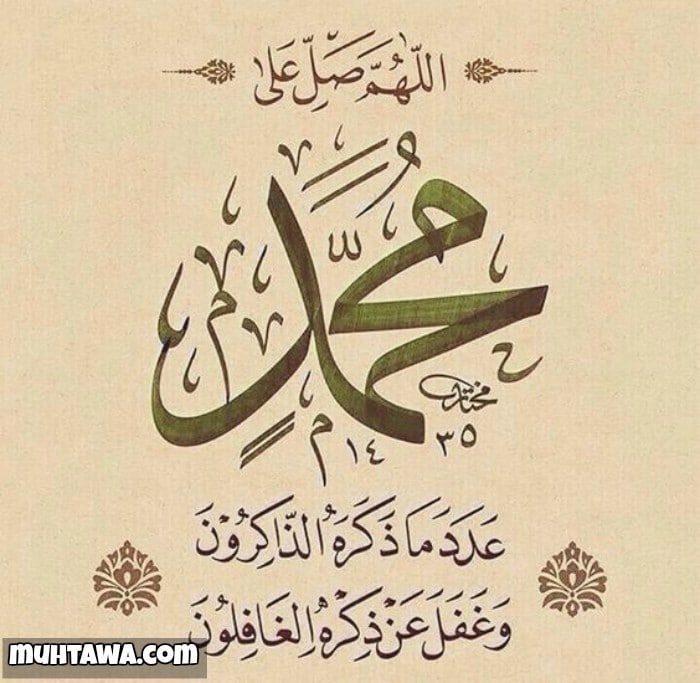 اللّٰهُمَّ صَلِّ عَلَىٰ
مُحَمَّدٍ
مختار
١٤٣٥
عَدَدَ مَا ذَكَرَهُ الذَّاكِرُوْنَ
وَغَفَلَ عَنْ ذِكْرِهِ الْغَافِلُونَ
MUHTAWA.COM